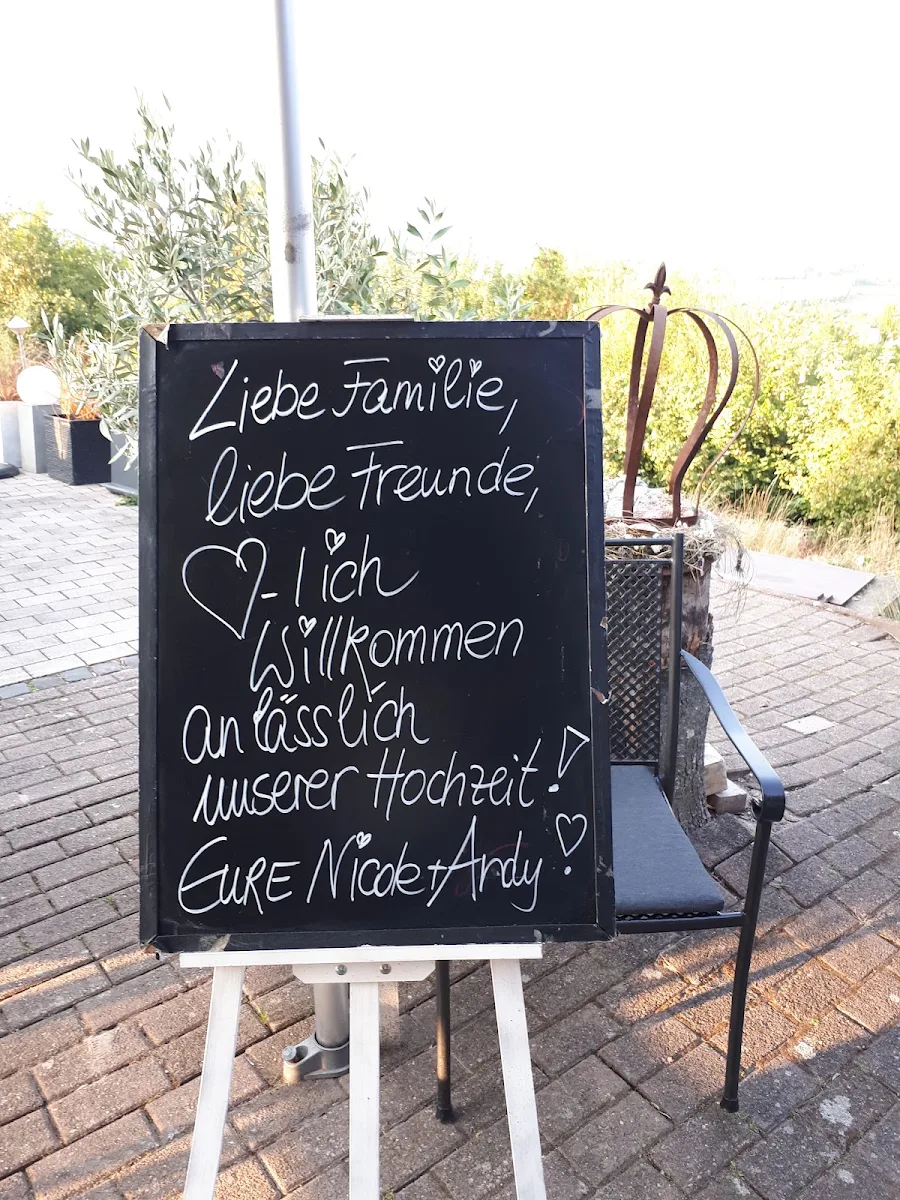 Liebe Familie,
liebe Freunde,
♡-lich
Willkommen
anlässlich
unserer Hochzeit!
Eure Nicole+Andy!